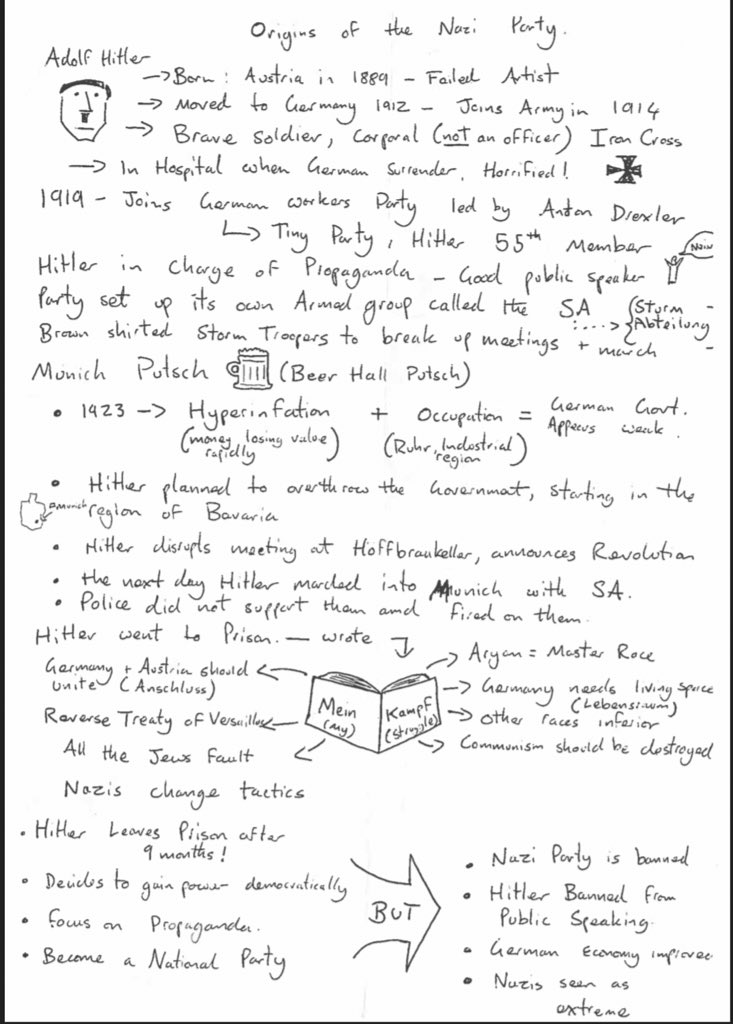 Origins of the Nazi Party.
Adolf Hitler
→ Born : Austria in 1889 – Failed Artist
→ Moved to Germany 1912 – Joins Army in 1914
→ Brave soldier, corporal (not an officer) Iron Cross
→ In Hospital when German Surrender. Horrified!
1919 – Joins German workers Party led by Anton Drexler
↳ Tiny Party, Hitler 55th Member
Nein
Hitler in charge of Propaganda – Good public speaker
Party set up its own Armed group called the SA {Sturm -
Abteilung
Brown shirted Storm Troopers to break up meetings + march -
Munich Putsch (Beer Hall Putsch)
• 1923 → Hyperinfation + Occupation = German Govt.
Appears weak.
(money losing value rapidly) (Ruhr, Industrial region)
• Hitler planned to overthrow the Governmat, starting in the
Munich
region of Bavaria
• Hitler disrupts meeting at Hoffbraukeller, announces Revolution
• the next day Hitler marched into Munich with SA.
• Police did not support them and fired on them.
Hitler went to Prison. — wrote
Germany + Austria should
unite (Anschluss)
Reverse Treaty of Versailles
All the Jews Fault
Mein
(my)
Kampf
(struggle)
Aryan = Master Race
Germany needs living space
(Lebensraum)
Other races inferior
Communism should be destroyed
Nazis change tactics
• Hitler Leaves Prison after
9 months!
• Decides to gain power democratically
• Focus on Propaganda.
• Become a National Party
BUT
• Nazi Party is banned
• Hitler Banned from
Public Speaking.
• German Economy improved
• Nazis seen as
extreme